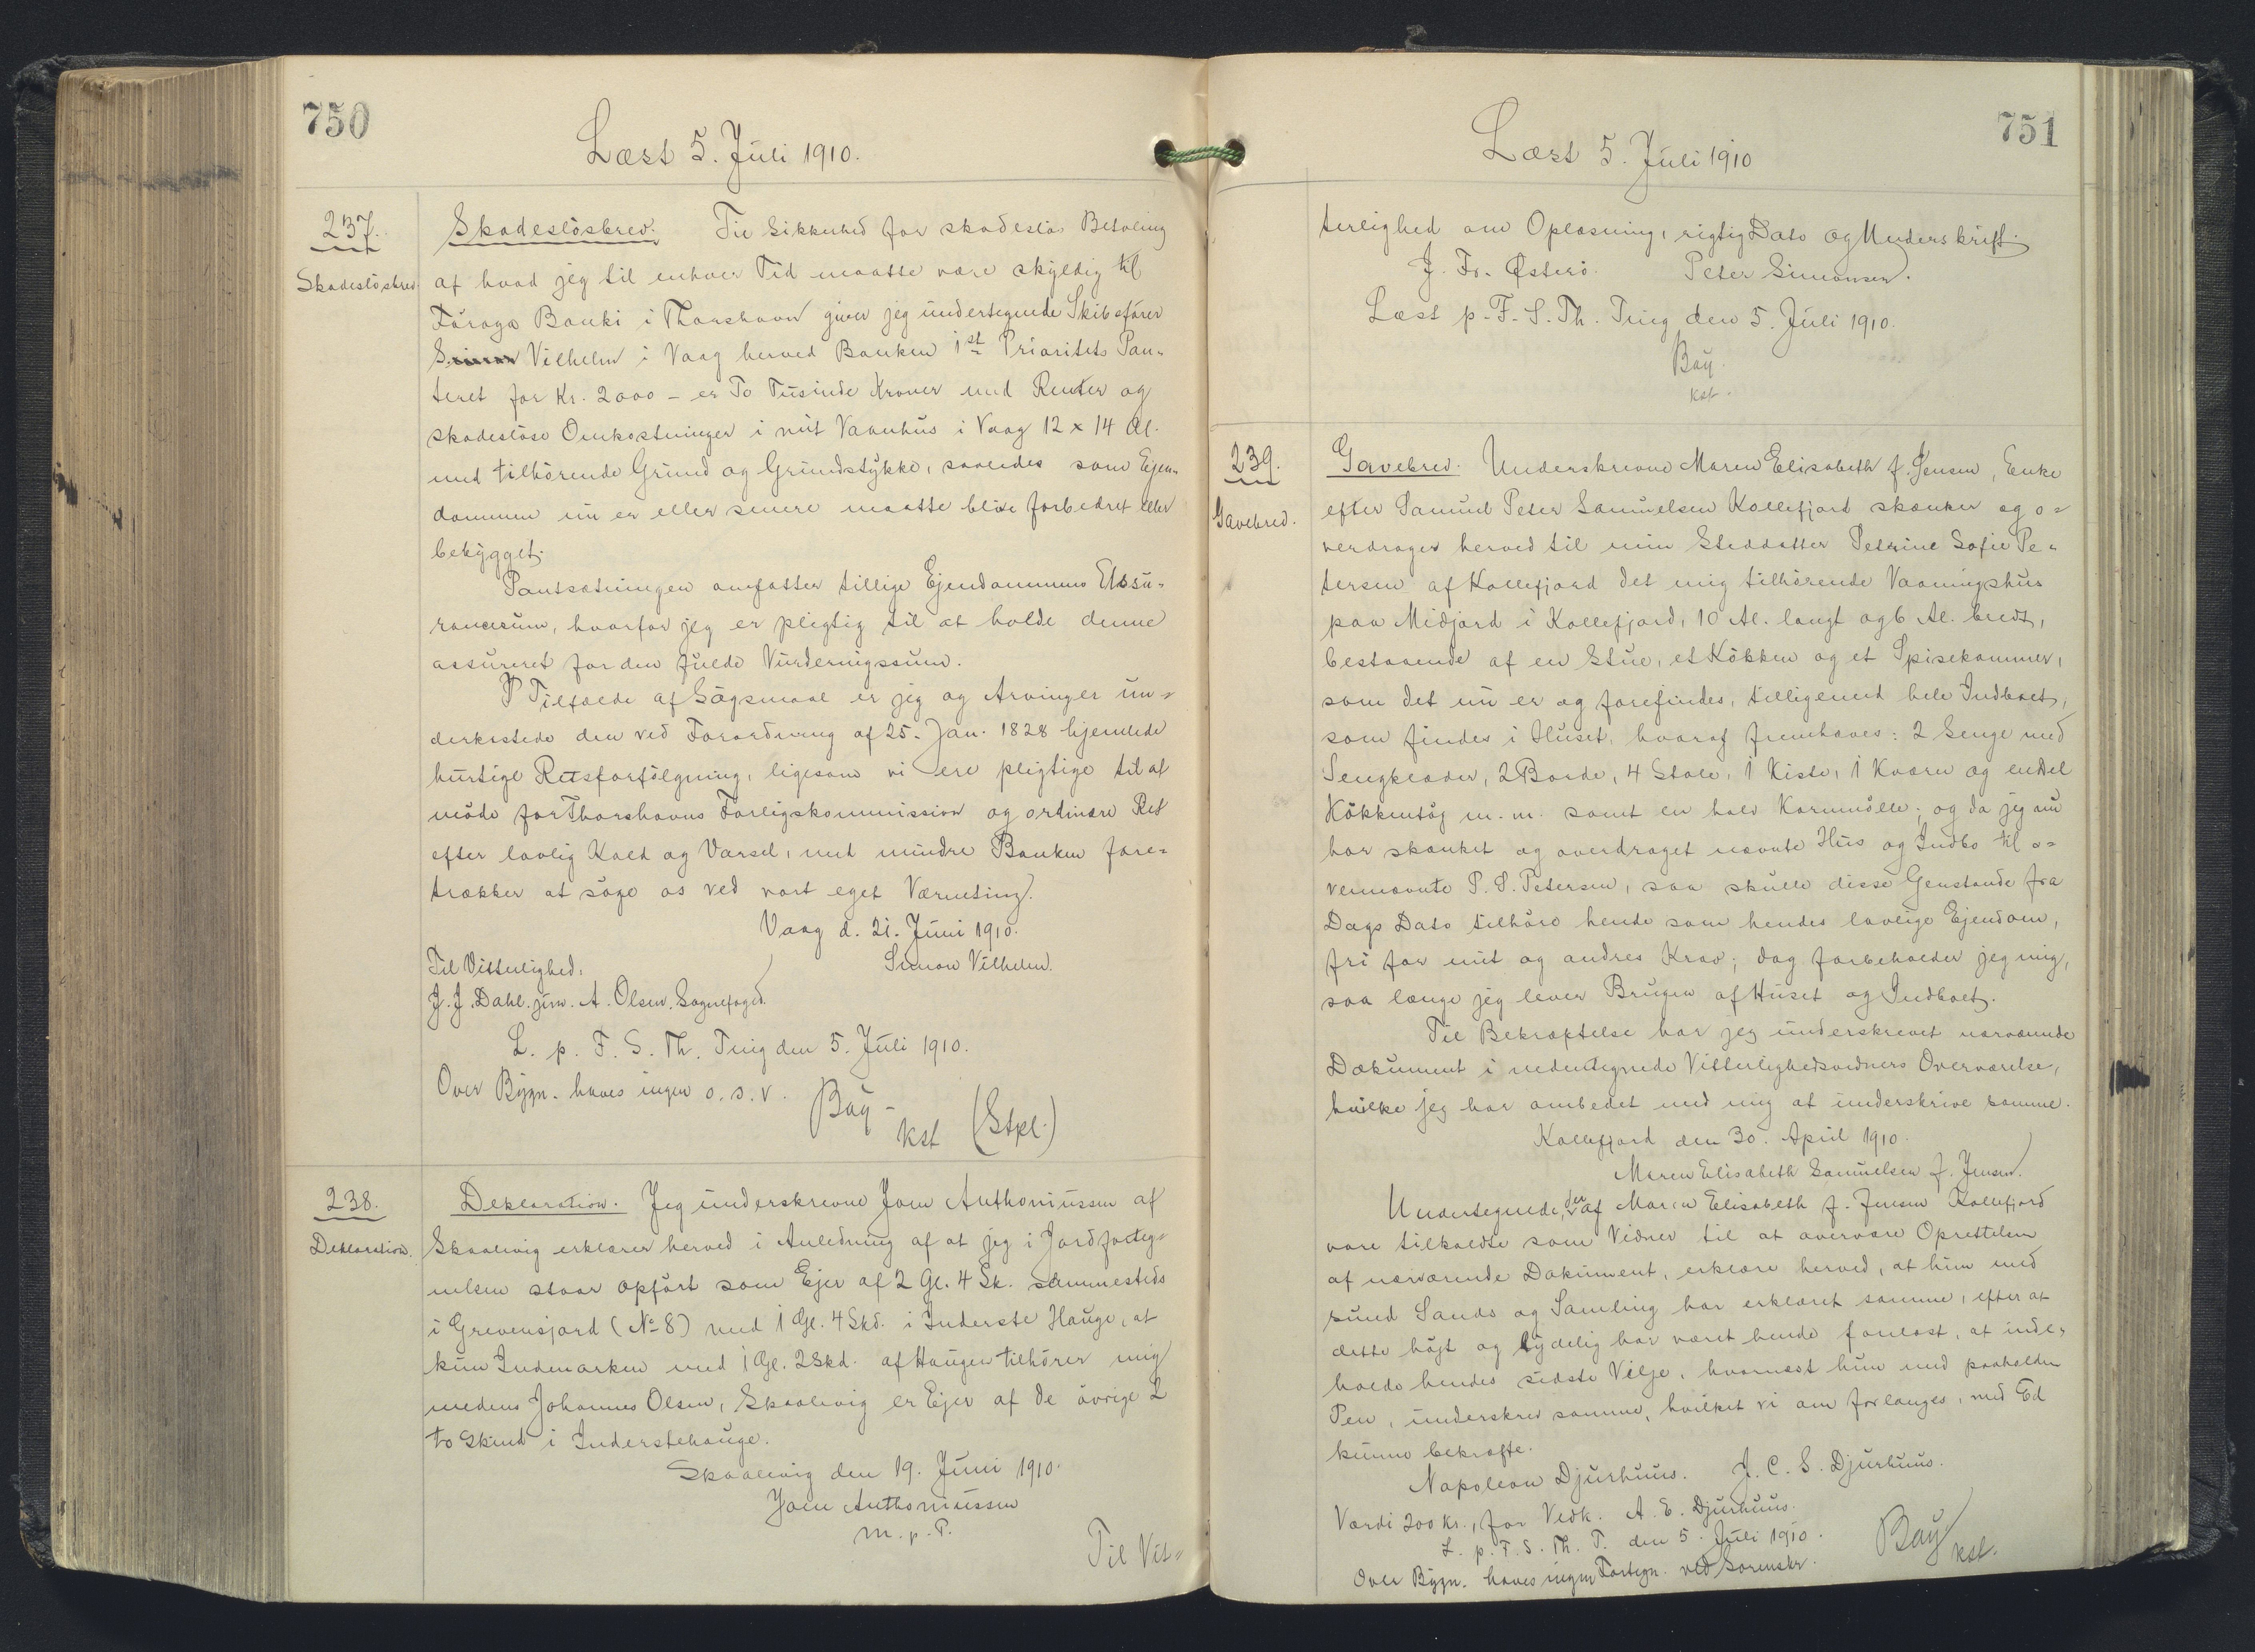 750
Læst 5. Juli 1910.
237.
Skadeslösbrev
Skadeslösbrev. Til Sikkerhed for skadeslös Betaling
af hvad jeg til enhver Tid maatte være skyldig til
Föroya Banki i Thorshavn giver jeg undertegnede Skibsförer
Simon Vilhelm i Vaag herved Banken 1st Prioritets Pan-
teret for Kr. 2000 - er To Tusinde Kroner med Renter og
skadeslöse Omkostninger i mit Vaanhus i Vaag 12 x 14 Al.
med tilhörende Grund og Grundstykke, saaledes som Ejen-
dommen nu er eller senere maatte blive forbedret eller
bebygget.
Pantsætningen omfatter tillige Ejendommens Assu-
rancesum, hvorfor jeg er pligtig til at holde denne
assureret for den fulde Vurderingssum.
I Tilfælde af Sögsmaal er jeg og Arvinger un-
derkastede den ved Forordning af 25. Jan. 1828 hjemlede
hurtige Retsforfölgning, ligesom vi ere pligtige til at
möde for Thorshavns Forligskommission og ordinære Ret
efter lovlig Kald og Varsel, med mindre Banken fore-
trækker at söge os ved vort eget Værneting.
Vaag d. 21. Juni 1910.
Til Vitterlighed: Simon Vilhelm.
J. J. Dahl. jun. A. Olsen. Sognefoged.
L. p. F. S. Th. Ting den 5. Juli 1910.
Over Bygn. haves ingen o. s. v. Bay -
kst (Stpl.)
238.
Deklaration.
Deklaration. Jeg underskrevne Joen Anthoniussen af
Skaalevig erklærer herved i Anledning af at jeg i Jordforteg-
nelsen staar opfört som Ejer af 2 Gl. 4 Sk. sammesteds
i Grevensjord (No 8) med 1 Gl. 4 Skd. i Inderste Hauge, at
kun Indmarken med 1 Gl. 2 Skd. af Haugen tilhörer mig
medens Johannes Olsen, Skaalevig er Ejer af de övrige 2
to Skind i Inderstehauge.
Skaalevig den 19. Juni 1910.
Joen Anthoniussen
m. p. P.
Til Vit-
751
Læst 5. Juli 1910
terlighed om Oplæsning, rigtig Dato og Underskrift.
J. Fr. Österö. Peter Simonsen.
Læst p. F. S. Th. Ting den 5. Juli 1910.
Bay.
kst.
239.
Gavebrev.
Gavebrev. Underskrevne Maren Elisabeth f. Jensen, Enke
efter Samuel Peter Samuelsen Kollefjord skænker og o-
verdrager herved til min Steddatter Petrine Sofie Pe-
tersen af Kollefjord det mig tilhörende Vaaningshus
paa Midjord i Kollefjord, 10 Al. langt og 6 Al. bredt,
bestaaende af en Stue, et Kökken og et Spisekammer,
som det nu er og forefindes, tilligemed hele Indboet,
som findes i Huset, hvoraf fremhæves: 2 Senge med
Sengklæder, 2 Borde, 4 Stole, 1 Kiste, 1 Kværn og endel
Kökkentöj m. m. samt en halv Kornmölle; og da jeg nu
har skænket og overdraget nævnte Hus og Indbo til o-
vennævnte P. S. Petersen, saa skulle disse Genstande fra
Dags Dato tilhöre hende som hendes lovlige Ejendom,
fri for mit og andres Krav; dog forbeholder jeg mig,
saa længe jeg lever Brugen af Huset og Indboet.
Til Bekræftelse har jeg underskrevet nærværende
Dokument i nedentegnede Vitterlighedsvidners Overværelse,
hvilke jeg har ombedet med mig at underskrive samme.
Kollefjord den 30. April 1910.
Maren Elisabeth Samuelsen f. Jensen.
Undertegnede, der af Maren Elisabeth f. Jensen Kollefjord
vare tilkaldte som Vidner til at overvære Oprettelsen
af nærværende Dokument, erklære herved, at hun med
sund Sands og Samling har erklæret samme, efter at
dette höjt og tydelig har været hende forelæst, at inde-
holde hendes sidste Vilje, hvornæst hun med paaholden
Pen, underskrev samme, hvilket vi om forlanges, med Ed
kunne bekræfte.
Napoleon Djurhuus. J. C. S. Djurhuus.
Værdi 200 Kr., for Vedk. A. E. Djurhuus.
L. p. F. S. Th. T. den 5. Juli 1910. Bay
kst.
Over Bygn. haves ingen Fortegn. ved Sorenskr.